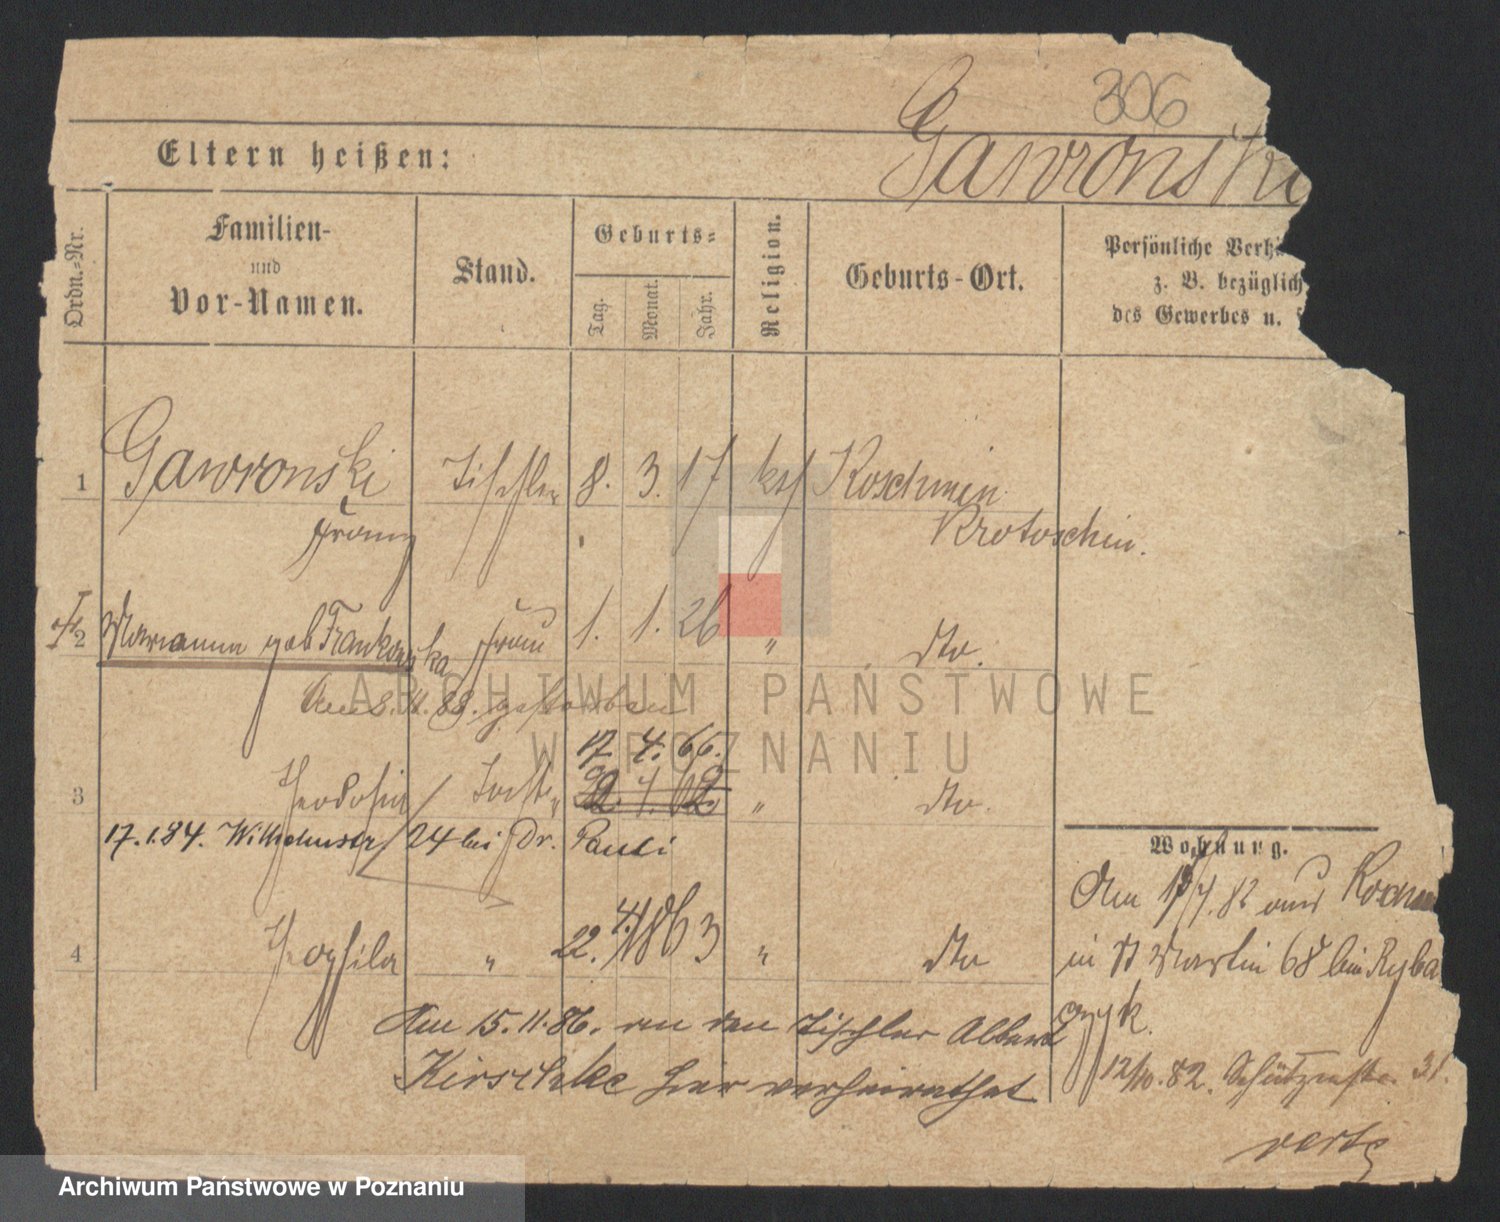 306
Gawronski
Eltern heißen:
Ordn.-Nr.
Familien-
und
Vor-Namen.
Stand.
Geburts-
Tag.
Monat.
Jahr.
Religion.
Geburts-Ort.
Persönliche Verhä
z. B. bezüglich
des Gewerbes u.
1 Gawronski Tischler 8. 3. 17 kth Koschmin
Franz Krotoschin.
2 Marianna geb Frankowska Frau 1. 1. 26 " dto.
Am 8. 11. 88. gestorben
17 4. 66.
3 Theodosia Tocht. " dto.
17.1.84. Wilhelmstr 24 bei Dr. Pauli
4 Theophila " 22. 4. 1863 " dto
Am 15.11.86. an den Tischler Albert
Kirschke hier verheirathet
Wohnung.
Am 17/7. 82 aus Koschm
in St Martin 68 bei Ryba
czyk.
12/10. 82. Schützenstr. 31.
verte
ARCHIWUM PAŃSTWOWE
W POZNANIU
Archiwum Państwowe w Poznaniu